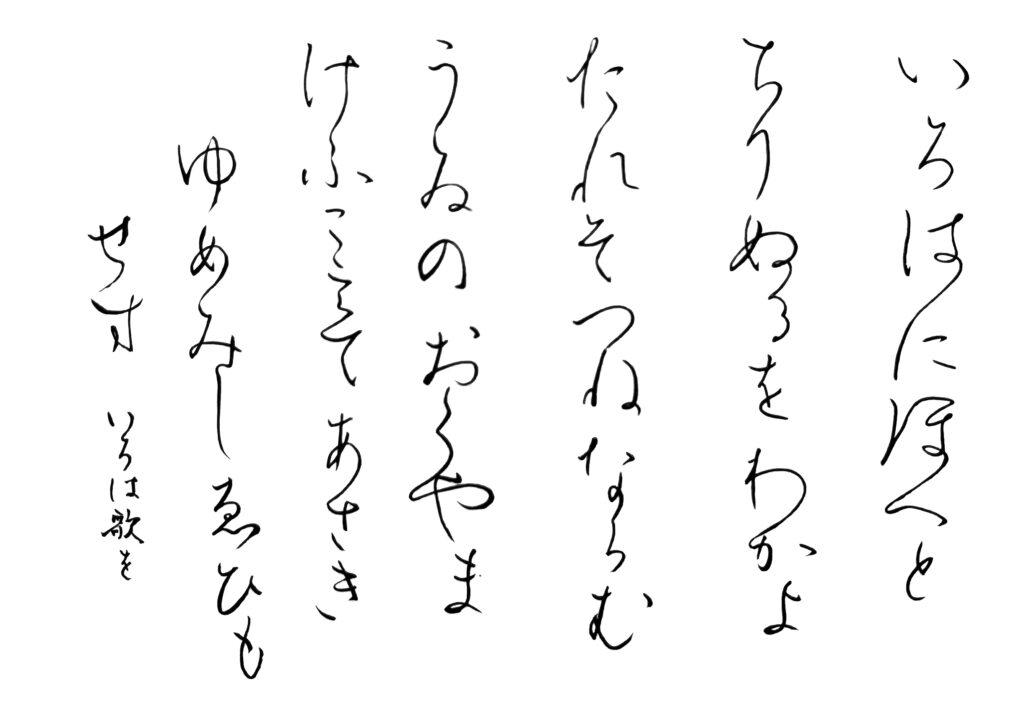 いろはにほへと
ちりぬるをわかよ
たれそつねならむ
うゐのおくやま
けふこえてあさき
ゆめみしゑひも
せす いろは歌を